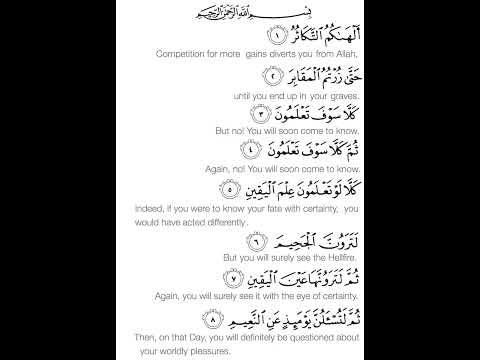 بِسْمِ اللَّهِ الرَّحْمَٰنِ الرَّحِيمِ
أَلْهَاكُمُ التَّكَاثُرُ ١
Competition for more gains diverts you from Allah,
حَتَّىٰ زُرْتُمُ الْمَقَابِرَ ٢
until you end up in your graves.
كَلَّا سَوْفَ تَعْلَمُونَ ٣
But no! You will soon come to know.
ثُمَّ كَلَّا سَوْفَ تَعْلَمُونَ ٤
Again, no! You will soon come to know.
كَلَّا لَوْ تَعْلَمُونَ عِلْمَ الْيَقِينِ ٥
Indeed, if you were to know your fate with certainty, you
would have acted differently.
لَتَرَوُنَّ الْجَحِيمَ ٦
But you will surely see the Hellfire.
ثُمَّ لَتَرَوُنَّهَا عَيْنَ الْيَقِينِ ٧
Again, you will surely see it with the eye of certainty.
ثُمَّ لَتُسْأَلُنَّ يَوْمَئِذٍ عَنِ النَّعِيمِ ٨
Then, on that Day, you will definitely be questioned about
your worldly pleasures.